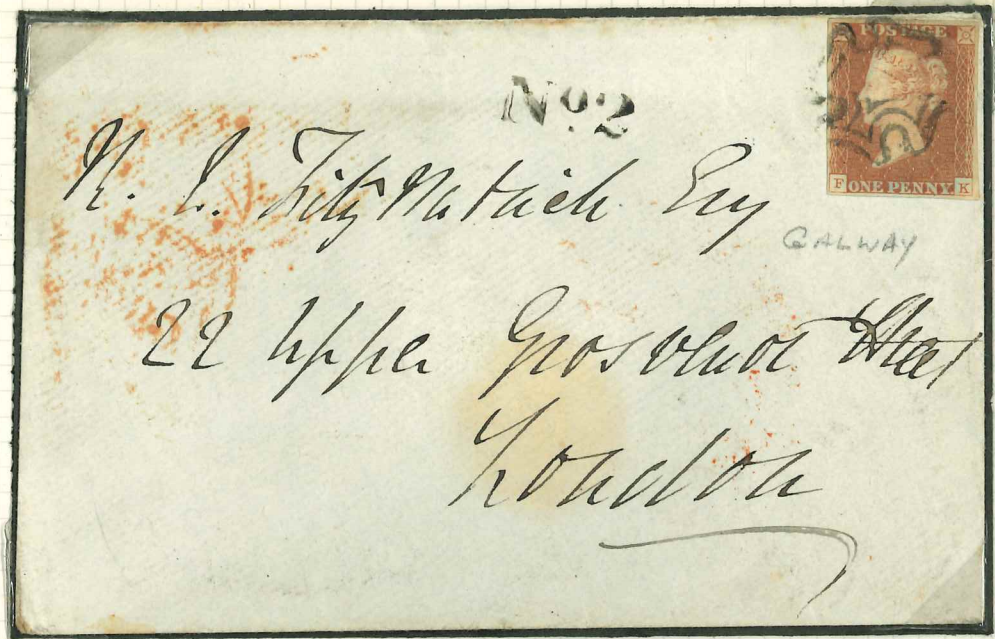 POSTAGE
No. 2
F ONE PENNY K
R. I. FitzPatrick Esq
GALWAY
22 Upper Grosvenor Street
London